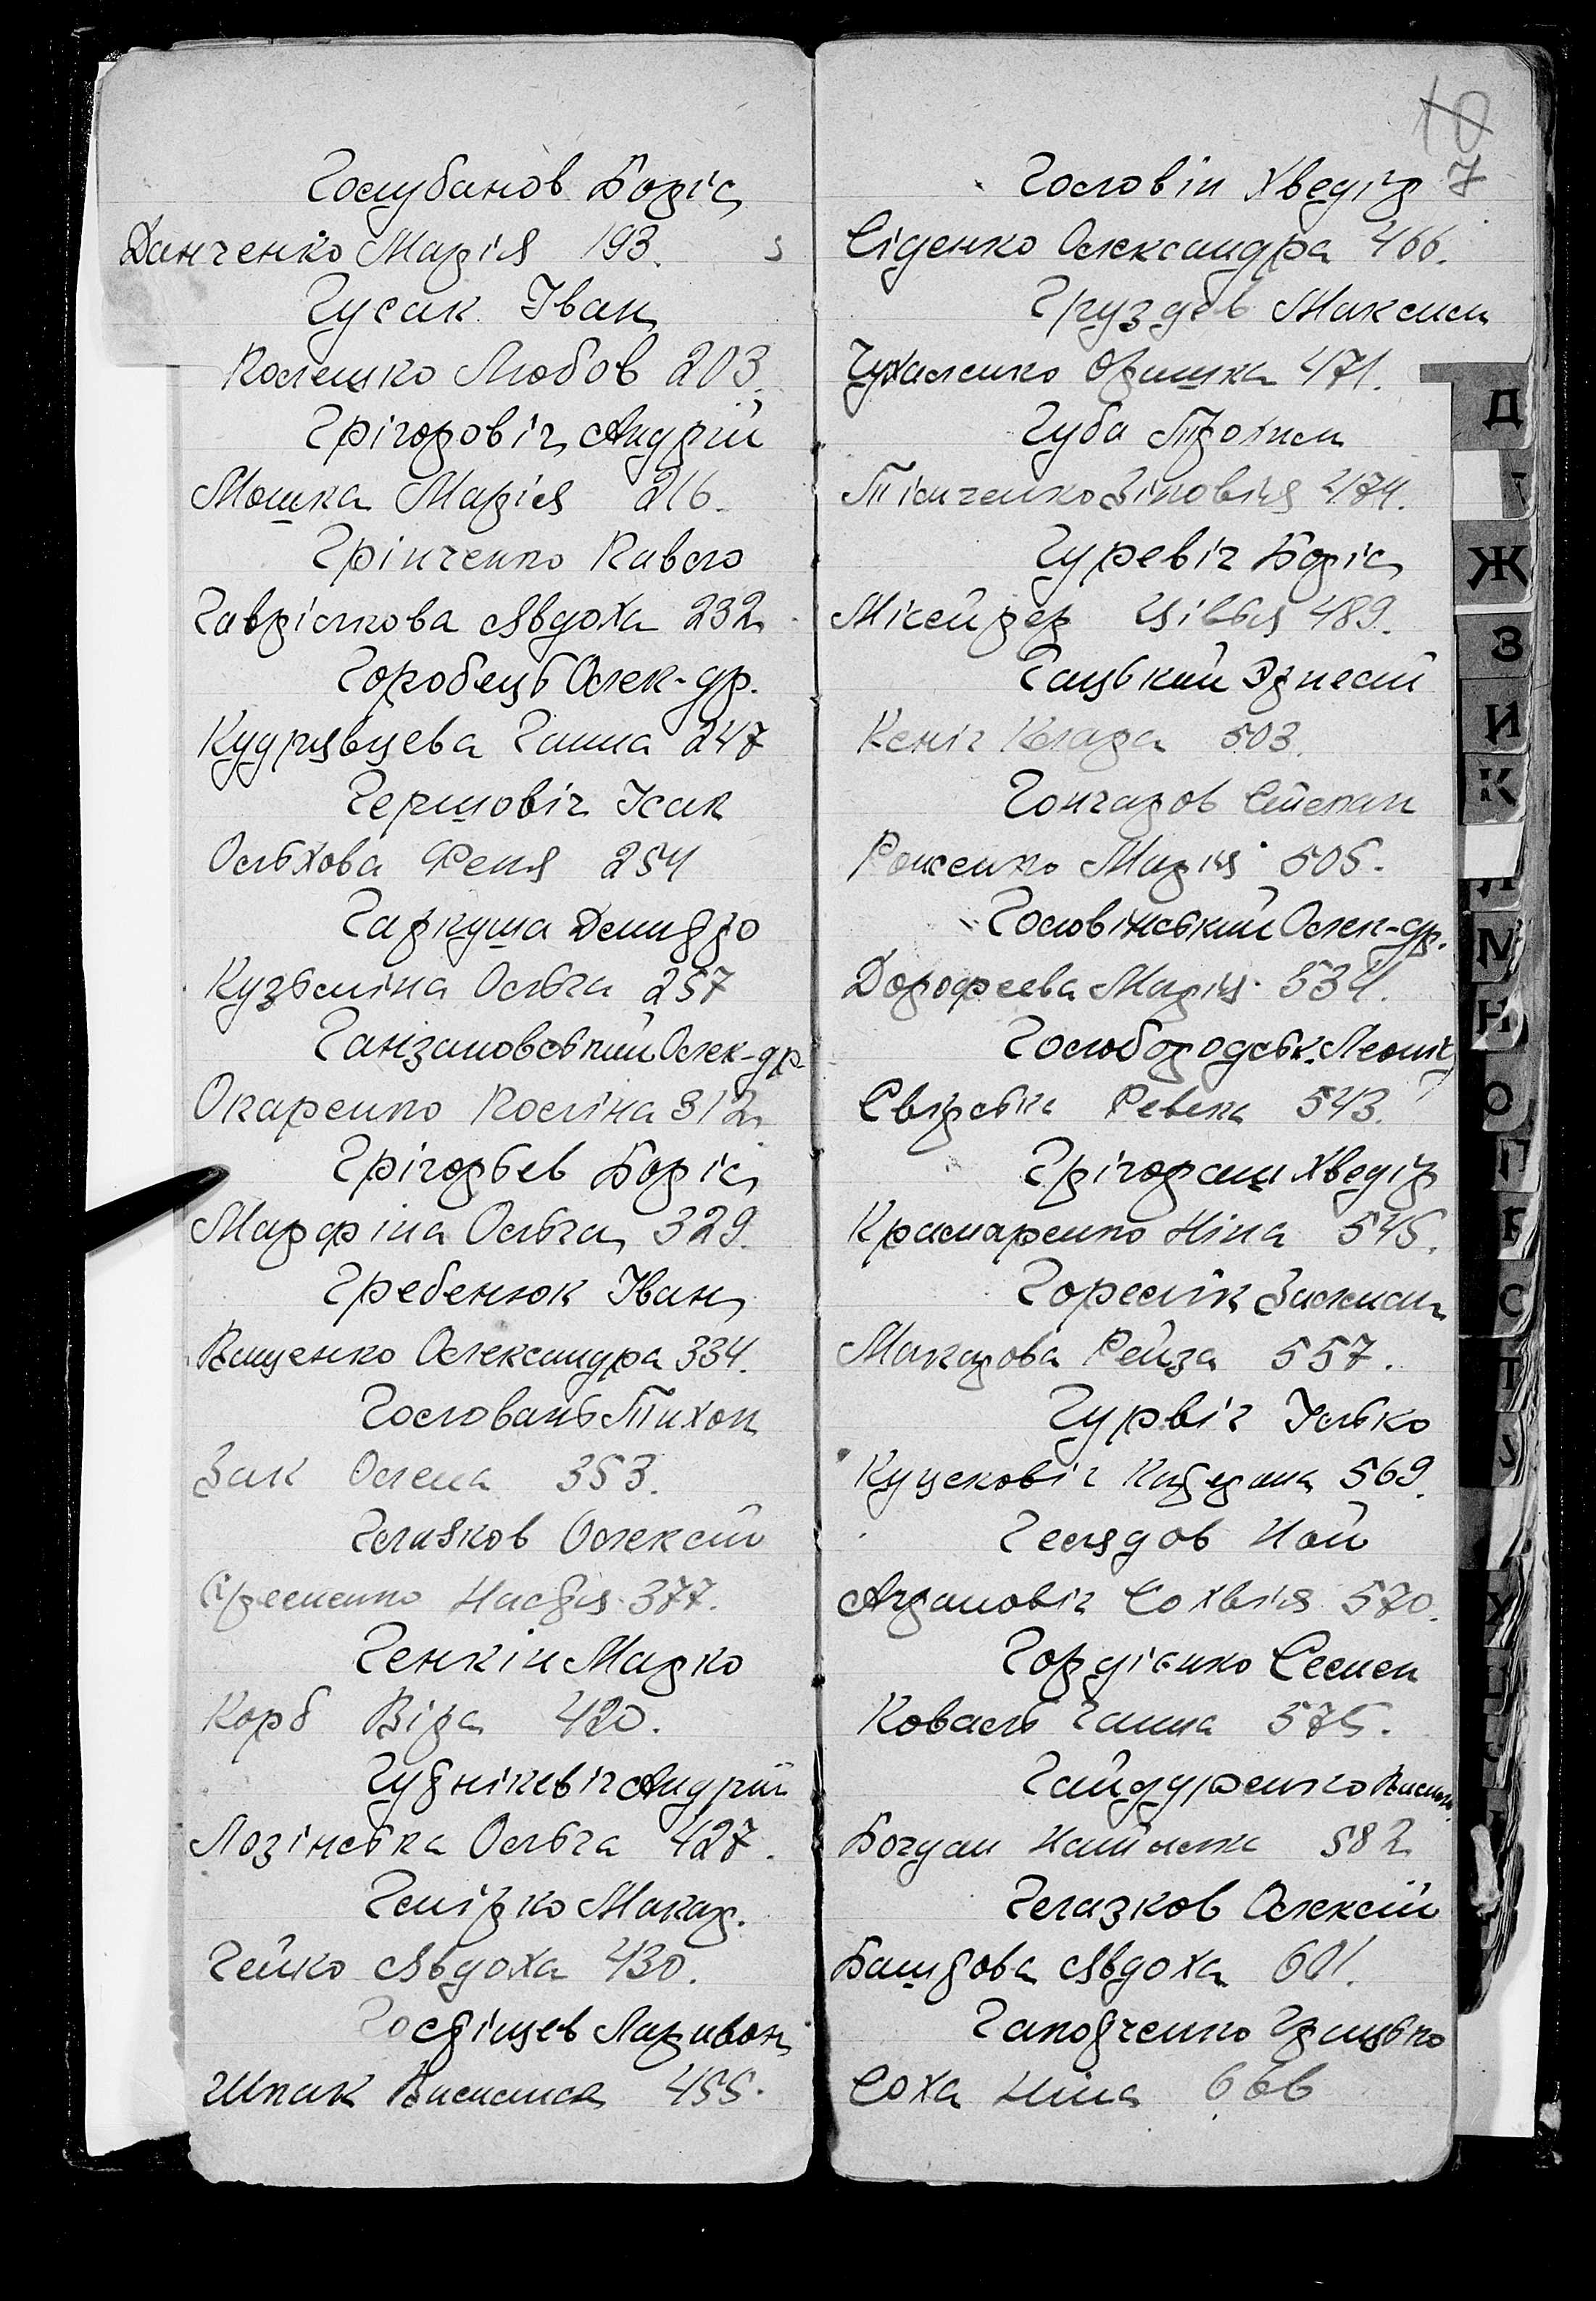 Голубанов Боріс
Данченко Марія 193.
Гусак Іван
Колешко Любов 203.
Грігоровіч Андрій
Мошка Марія 216.
Грінченко Павло
Гаврілкова Явдоха 232
Горобець Олек-др.
Кудрявцева Ганна 247
Гершовіч Ісак
Ольхова Феня 254
Гаркуша Дмитро
Кузьміна Ольга 257
Ганзановський Олек-др
Окаренко Поліна 312
Грігорьев Боріс
Марфіна Ольга 329.
Гребенюк Іван
Ващенко Олександра 334.
Головань Тихон
Зак Олена 353.
Глазков Олексій
Настя 377.
Генкін Марко
Корб Віра 420.
Гутнікевіч Андрій
Лозінська Ольга 427.
Гмірко Макар.
Гейко Явдоха 430.
Гостіщев Ларивон
Шпак Василиса 455.
10
Головін Хведір 7
Сіденко Олександра 466.
Груздев Максим
Чухаленко Оришка 471.
Губа Трохим
Тімченко Зіновія 474.
Гуревіч Боріс
Мікейрер Цівья 489.
Гацький Эрнест
Кеніг Клара 503.
Гончаров Степан
Роженко Марія 505.
Головінський Олек-др.
Дорофеева Марія 534.
Голобородськ. Леонід
Свірська Ревека 543.
Грігораш Хведір
Крамаренко Ніна 545.
Горелік Залман
Макарова Рейза 557.
Гурвіч Ілько
Куцековіч 569.
Гелядов Ной
Арановіч Сохвія 570.
Гордієнко Семен
Коваль Ганна 575.
Гайдуренко Василь
Богдан Наталка 582
Глазков Олексій
Баштова Явдоха 601.
Гапотченко Грицько
Соха Ніна 666
Д
Ж
З
И
К
Л
М
Н
О
П
Р
С
Т
У
Х